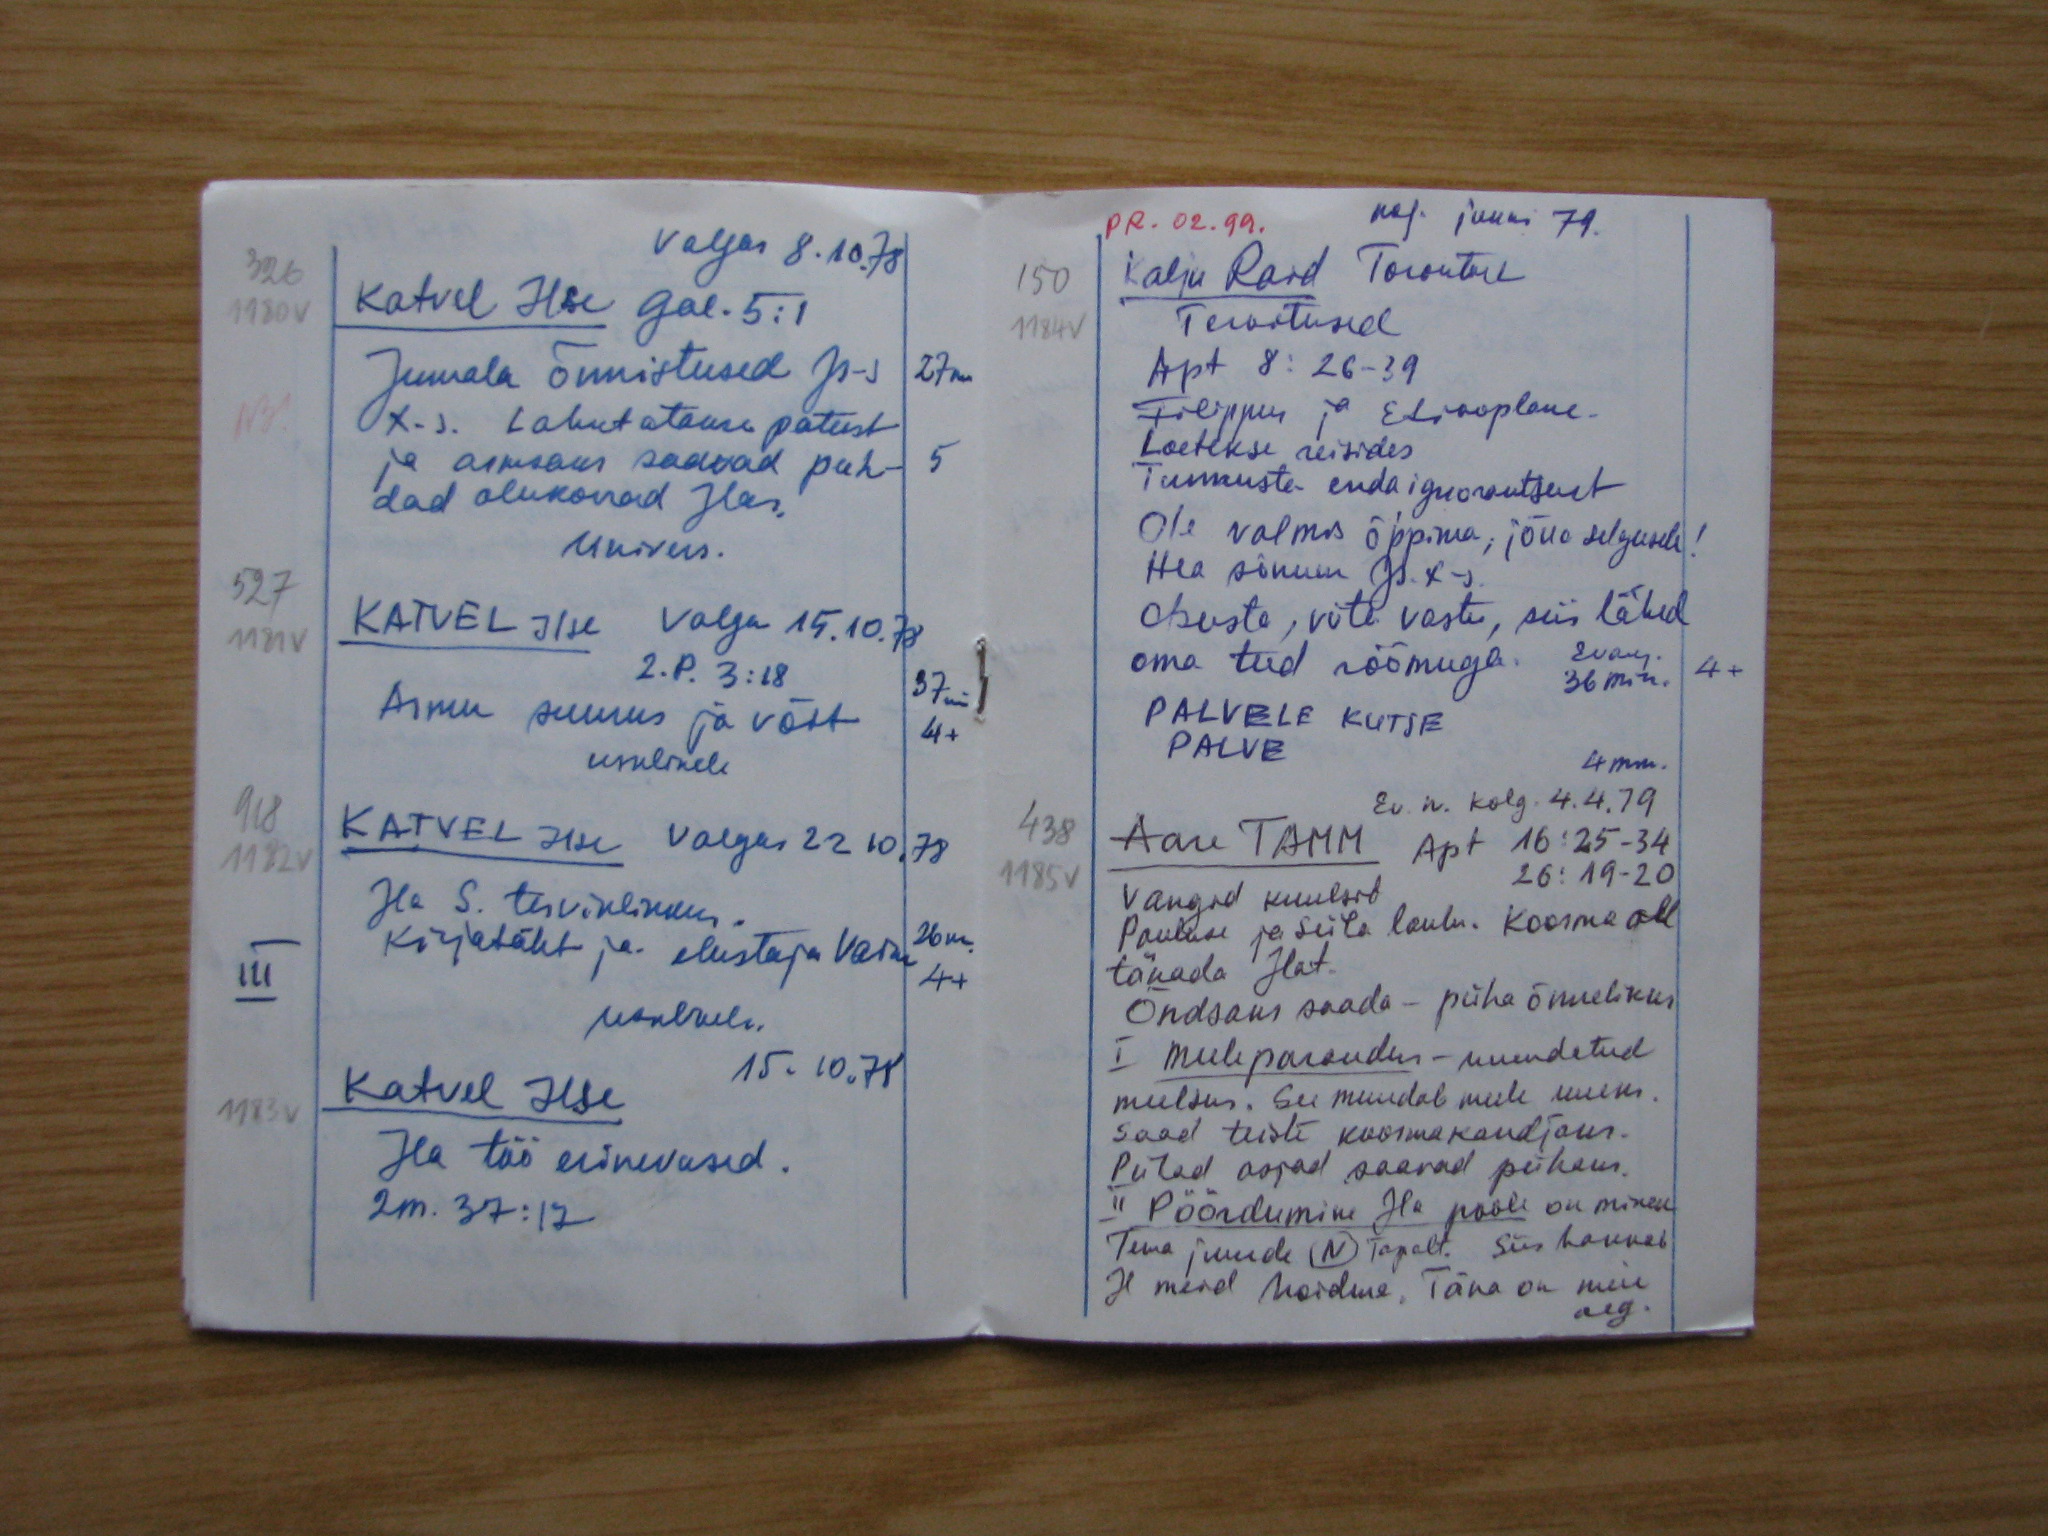 Valgas 8.10.78
326
1180V
Katvel Ilse Gal. 5:1
Jumala õnnistused Js-s 27m
NB!
X-s. Lahutatause patust
ja armsans saavad puh- 5
dad olukorrad Jlas.
Univers.
527
1181V
KATVEL Ilse Valga 15.10.78
2.P. 3:18
Armu suurus ja võit 37m
4+
usulisele
918
1182V
KATVEL Ilse Valgas 22 10.78
Jla S. terviklikkus.
Kirjatäht ja elustaja Vaim 26m.
4+
III
15.10.78
Katvel Ilse
1183V
Jla töö erinevused.
2m. 37:17
PR. 02.99. juuni 79.
150
1184V
Kalju Raid Torontost
Tervitused
Apt 8:26-39
Filippus ja Etiooplane.
Loetakse reisides
Tunnusta enda ignorantsust
Ole valmis õppima, jõua selgusele!
Hea sõnum Js. X-s.
Otsusta, võta vastu, siis lähed
oma teed rõõmuga. Evang.
36 min. 4+
PALVELE KUTSE
PALVE
4 min.
Ev. n. Kolg. 4.4.79
438
1185V
Aare TAMM Apt 16:25-34
26:19-20
Vangid kuulsid
Pauluse ja Siila laulu. Koosma all
tänada Jlat.
Õndsaks saada - püha õnnelikus
I Meeleparandus - muudetud
meelsus. See muudab meele uueks.
Saad teiste koosmakandjaks.
Pühad asjad saavad pühaks.
II Pöördumine Jla poole on minek
Tema juurde (N) Topalt. Siis hakkab
Jl meid hoidma. Täna on meie
aeg.